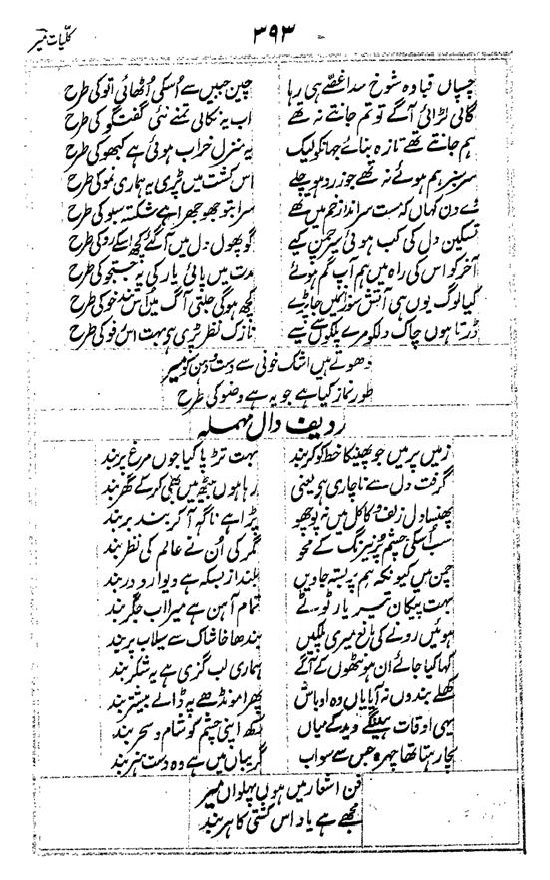 کلیات میر
۳۹۳
چسپاں قبا وہ شوخ سدا غصے ہی رہا
چین جبیں سے اُسکی اُٹھائی اتو کی طرح
گالی لڑائی آگے تو تم جانتے نہ تھے
اب یہ نکالی تمنے نئی گفتگو کی طرح
ہم جانتے تھے تازہ بنائے جہاں کو لیک
یہ منزل خراب ہوئی ہے کبھو کی طرح
سرسبز ہم ہوئے نہ تھے جو زرد ہو چلے
اس کشت میں پڑی یہ ہماری نمو کی طرح
وے دن کہاں کہ مست سرانداز خم میں تھے
سر اب تو جھوجھرا ہے شکستہ سبو کی طرح
تسکین دل کی کب ہوئی سیر چمن کیے
گو پھول دل میں آگئے کچھ اسکے رو کی طرح
آخر کو اس کی راہ میں ہم آپ گم ہوئے
مدت میں پائی یار کی یہ جستجو کی طرح
کیا لوگ یوں ہی آتش سوزاں میں جا پڑے
کچھ ہوگی جلتی آگ میں اس تند خو کی طرح
ڈرتا ہوں چاک دلکو مرے پلکوں سے سیے
نازک نظر پڑی ہی بہت اس رفو کی طرح
دھوتے ہیں اشک خونی سے دست و دہن کو میر
طور نماز کیا ہے جو یہ ہے وضو کی طرح
ردیف دال مہملہ
زمیں پر میں جو پھینکا خط کو کر بند
بہت تڑپا کیا جوں مرغ پر بند
گرفت دل سے ناچاری ہو یعنی
رہا ہوں بیٹھ میں بھی کر کے گھر بند
پھنسا دل زلف و کاکل میں نہ پوچھو
پڑا ہے ناگہ آ کر بند بر بند
سب اُسکی چشم پر نیرنگ کے محو
مگر کی اُن نے عالم کی نظر بند
چمن میں کیونکہ ہم پر بستہ جاویں
بلند از بسکہ ہے دیوار و در بند
بہت پیکان تیر یار ٹوٹے
تمام آہن ہے میرا اب جگر بند
ہوئیں رونے کی مانع میری پلکیں
بندھا خاشاک سے سیلاب پر بند
کہا کیا جائے ان ہونٹھوں کے آگے
ہماری لب گزی ہے یہ شکر بند
کھلے بندوں نہ آیا یاں وہ اوباش
پھرا مونڈھے پہ ڈالے بیشتر بند
یہی اوقات ہینگے دید کے میاں
رکھ اپنی چشم کو شام و سحر بند
بچا رہتا تھا چہرہ جس سے سو اب
گریباں میں ہے وہ دست ہنر بند
فن اشعار میں ہوں پہلواں میر
مجھے ہے یاد اس کشتی کا ہر بند